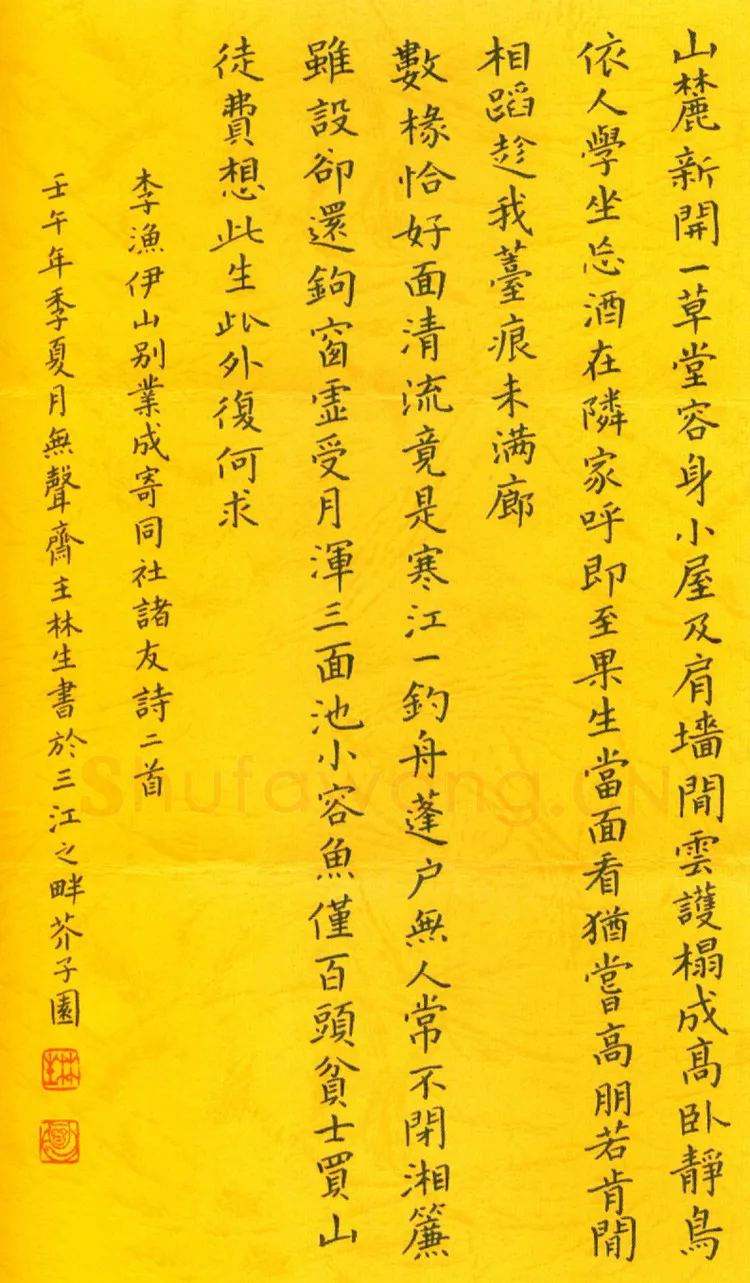 山麓新開一草堂容身小屋及肩墻閒雲護榻成高卧靜鳥
依人學坐忘酒在隣家呼即至果生當面看猶嘗高朋若肯閒
相蹈趁我薹痕未满廊
數椽恰好面清流竟是寒江一釣舟蓬户無人常不閉湘簾
雖設卻還鉤窗虛受月渾三面池小容魚僅百頭貧士買山
徒費想此生此外復何求
李漁伊山别業成寄同社諸友詩二首
壬午年季夏月無聲齋主林生書於三江之畔芥子園
Shufawang.CN